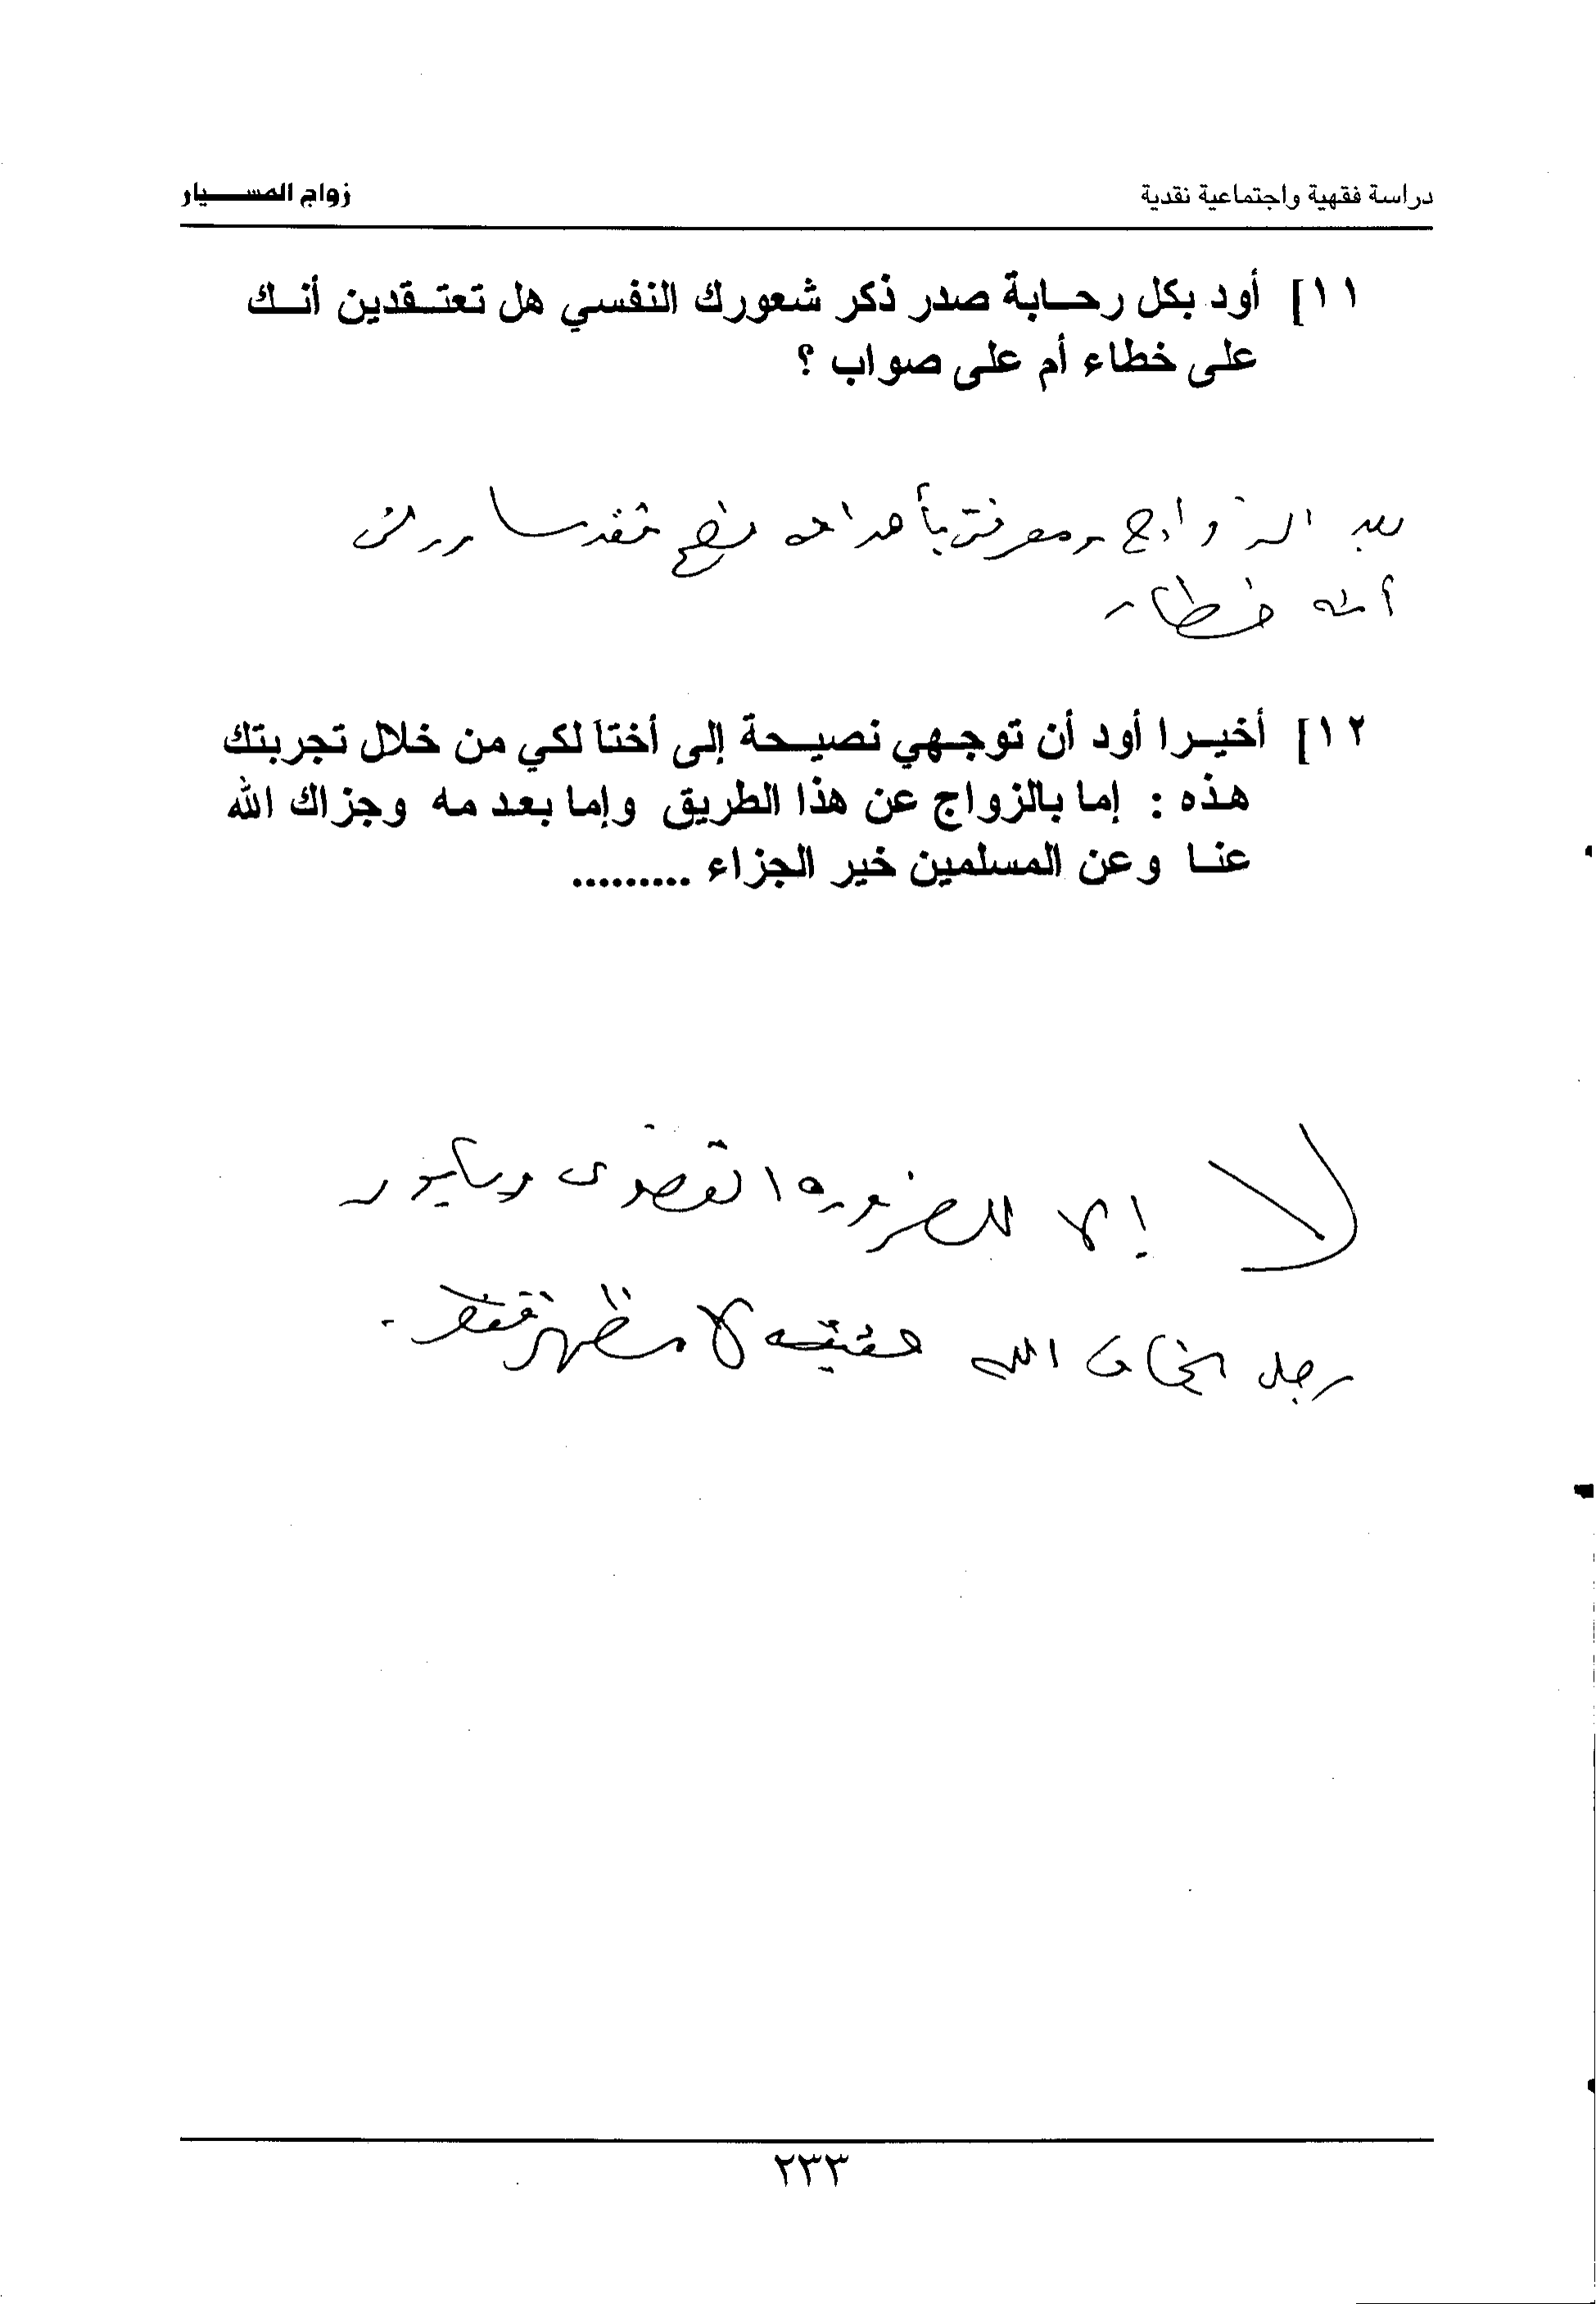 دراسة فقهية واجتماعية نقدية
زواج المسيار
١١] أود بكل رحابة صدر ذكر شعورك النفسي هل تعتقدين أنك
على خطاء أم على صواب ؟
بعد الزواج ومعرفتي بأهدافه
أنه خطاء
١٢] أخيرا أود أن توجهي نصيحة إلى أختا لكي من خلال تجربتك
هذه : إما بالزواج عن هذا الطريق وإما بعدمه وجزاك الله
عنا وعن المسلمين خير الجزاء .........
لا إلا للضرورة القصوى ويكون
رجل يخاف الله حقيقة لا مظهر فقط .
٢٣٣